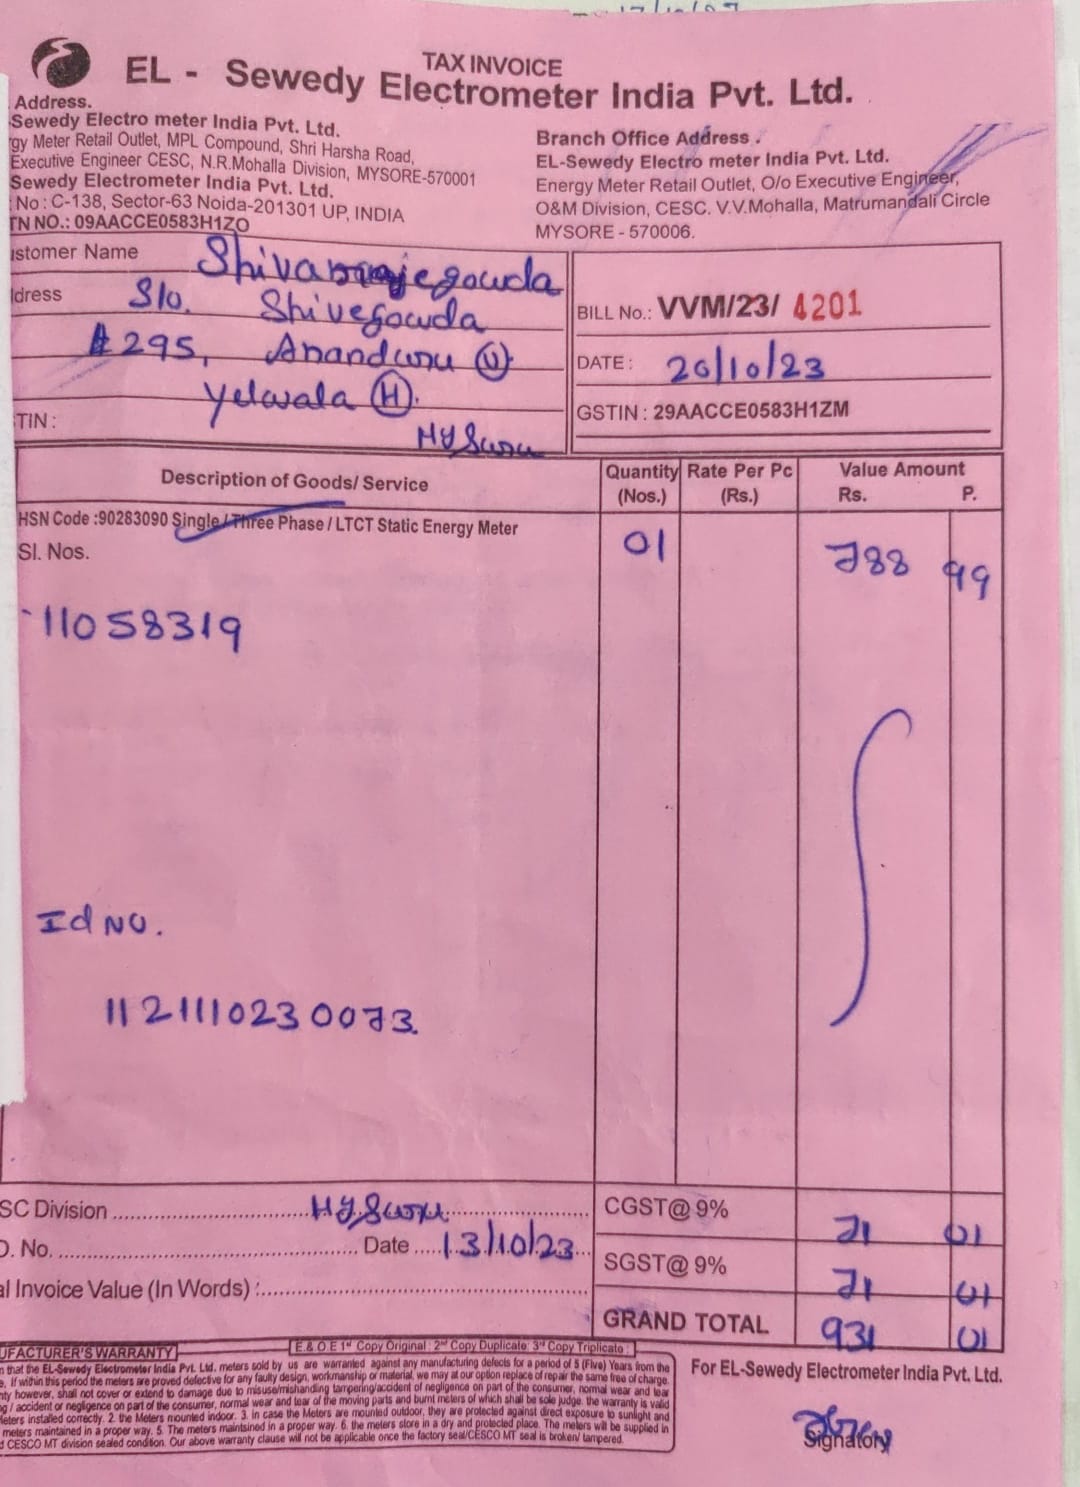 TAX INVOICE
EL - Sewedy Electrometer India Pvt. Ltd.
Address.
Sewedy Electro meter India Pvt. Ltd.
gy Meter Retail Outlet, MPL Compound, Shri Harsha Road,
Executive Engineer CESC, N.R.Mohalla Division, MYSORE-570001
Sewedy Electrometer India Pvt. Ltd.
No : C-138, Sector-63 Noida-201301 UP, INDIA
TN NO.: 09AACCE0583H1ZO
Branch Office Address .
EL-Sewedy Electro meter India Pvt. Ltd.
Energy Meter Retail Outlet, O/o Executive Engineer,
O&M Division, CESC. V.V.Mohalla, Matrumandali Circle
MYSORE - 570006.
stomer Name
dress S/o. Shivegowda
295,
Yelwala (H).
TIN :
Mysuru
BILL No.: VVM/23/ 4201
DATE : 20/10/23
GSTIN : 29AACCE0583H1ZM
Description of Goods/ Service Quantity (Nos.) Rate Per Pc (Rs.) Value Amount Rs. P.
HSN Code :90283090 Single / Three Phase / LTCT Static Energy Meter 01 788 99
Sl. Nos.
11058319
Id No.
1121110230073.
SC Division Mysuru CGST@ 9% 71 01
O. No. Date 13/10/23 SGST@ 9% 71 01
al Invoice Value (In Words) : GRAND TOTAL 931 01
E.& O E 1st Copy Original : 2nd Copy Duplicate: 3rd Copy Triplicate :
UFACTURER'S WARRANTY
that the EL-Sewedy Electrometer India Pvt. Ltd. meters sold by us are warranted against any manufacturing defects for a period of 5 (Five) Years from the
If within this period the meters are proved defective for any faulty design, workmanship or material, we may at our option replace of repair the same free of charge.
nty however, shall not cover or extend to damage due to misuse/mishanding tampering/accident of negligence on part of the consumer, normal wear and tear
g / accident or negligence on part of the consumer, normal wear and tear of the moving parts and burnt meters of which shall be sole judge. the warranty is valid
Meters installed correctly. 2. the Meters mounted indoor. 3. in case the Meters are mounted outdoor, they are protected against direct exposure to sunlight and
meters maintained in a proper way. 5. The meters maintained in a proper way. 6. the meters store in a dry and protected place. The meters will be supplied in
d CESCO MT division sealed condition. Our above warranty clause will not be applicable once the factory seal/CESCO MT seal is broken/ tampered.
For EL-Sewedy Electrometer India Pvt. Ltd.
Signatory